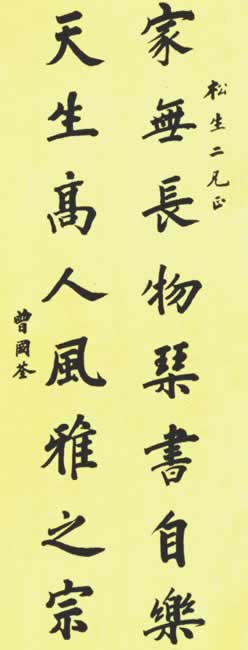 松生二兄正
家無長物琹書自樂
天生髙人風雅之宗
曾國荃